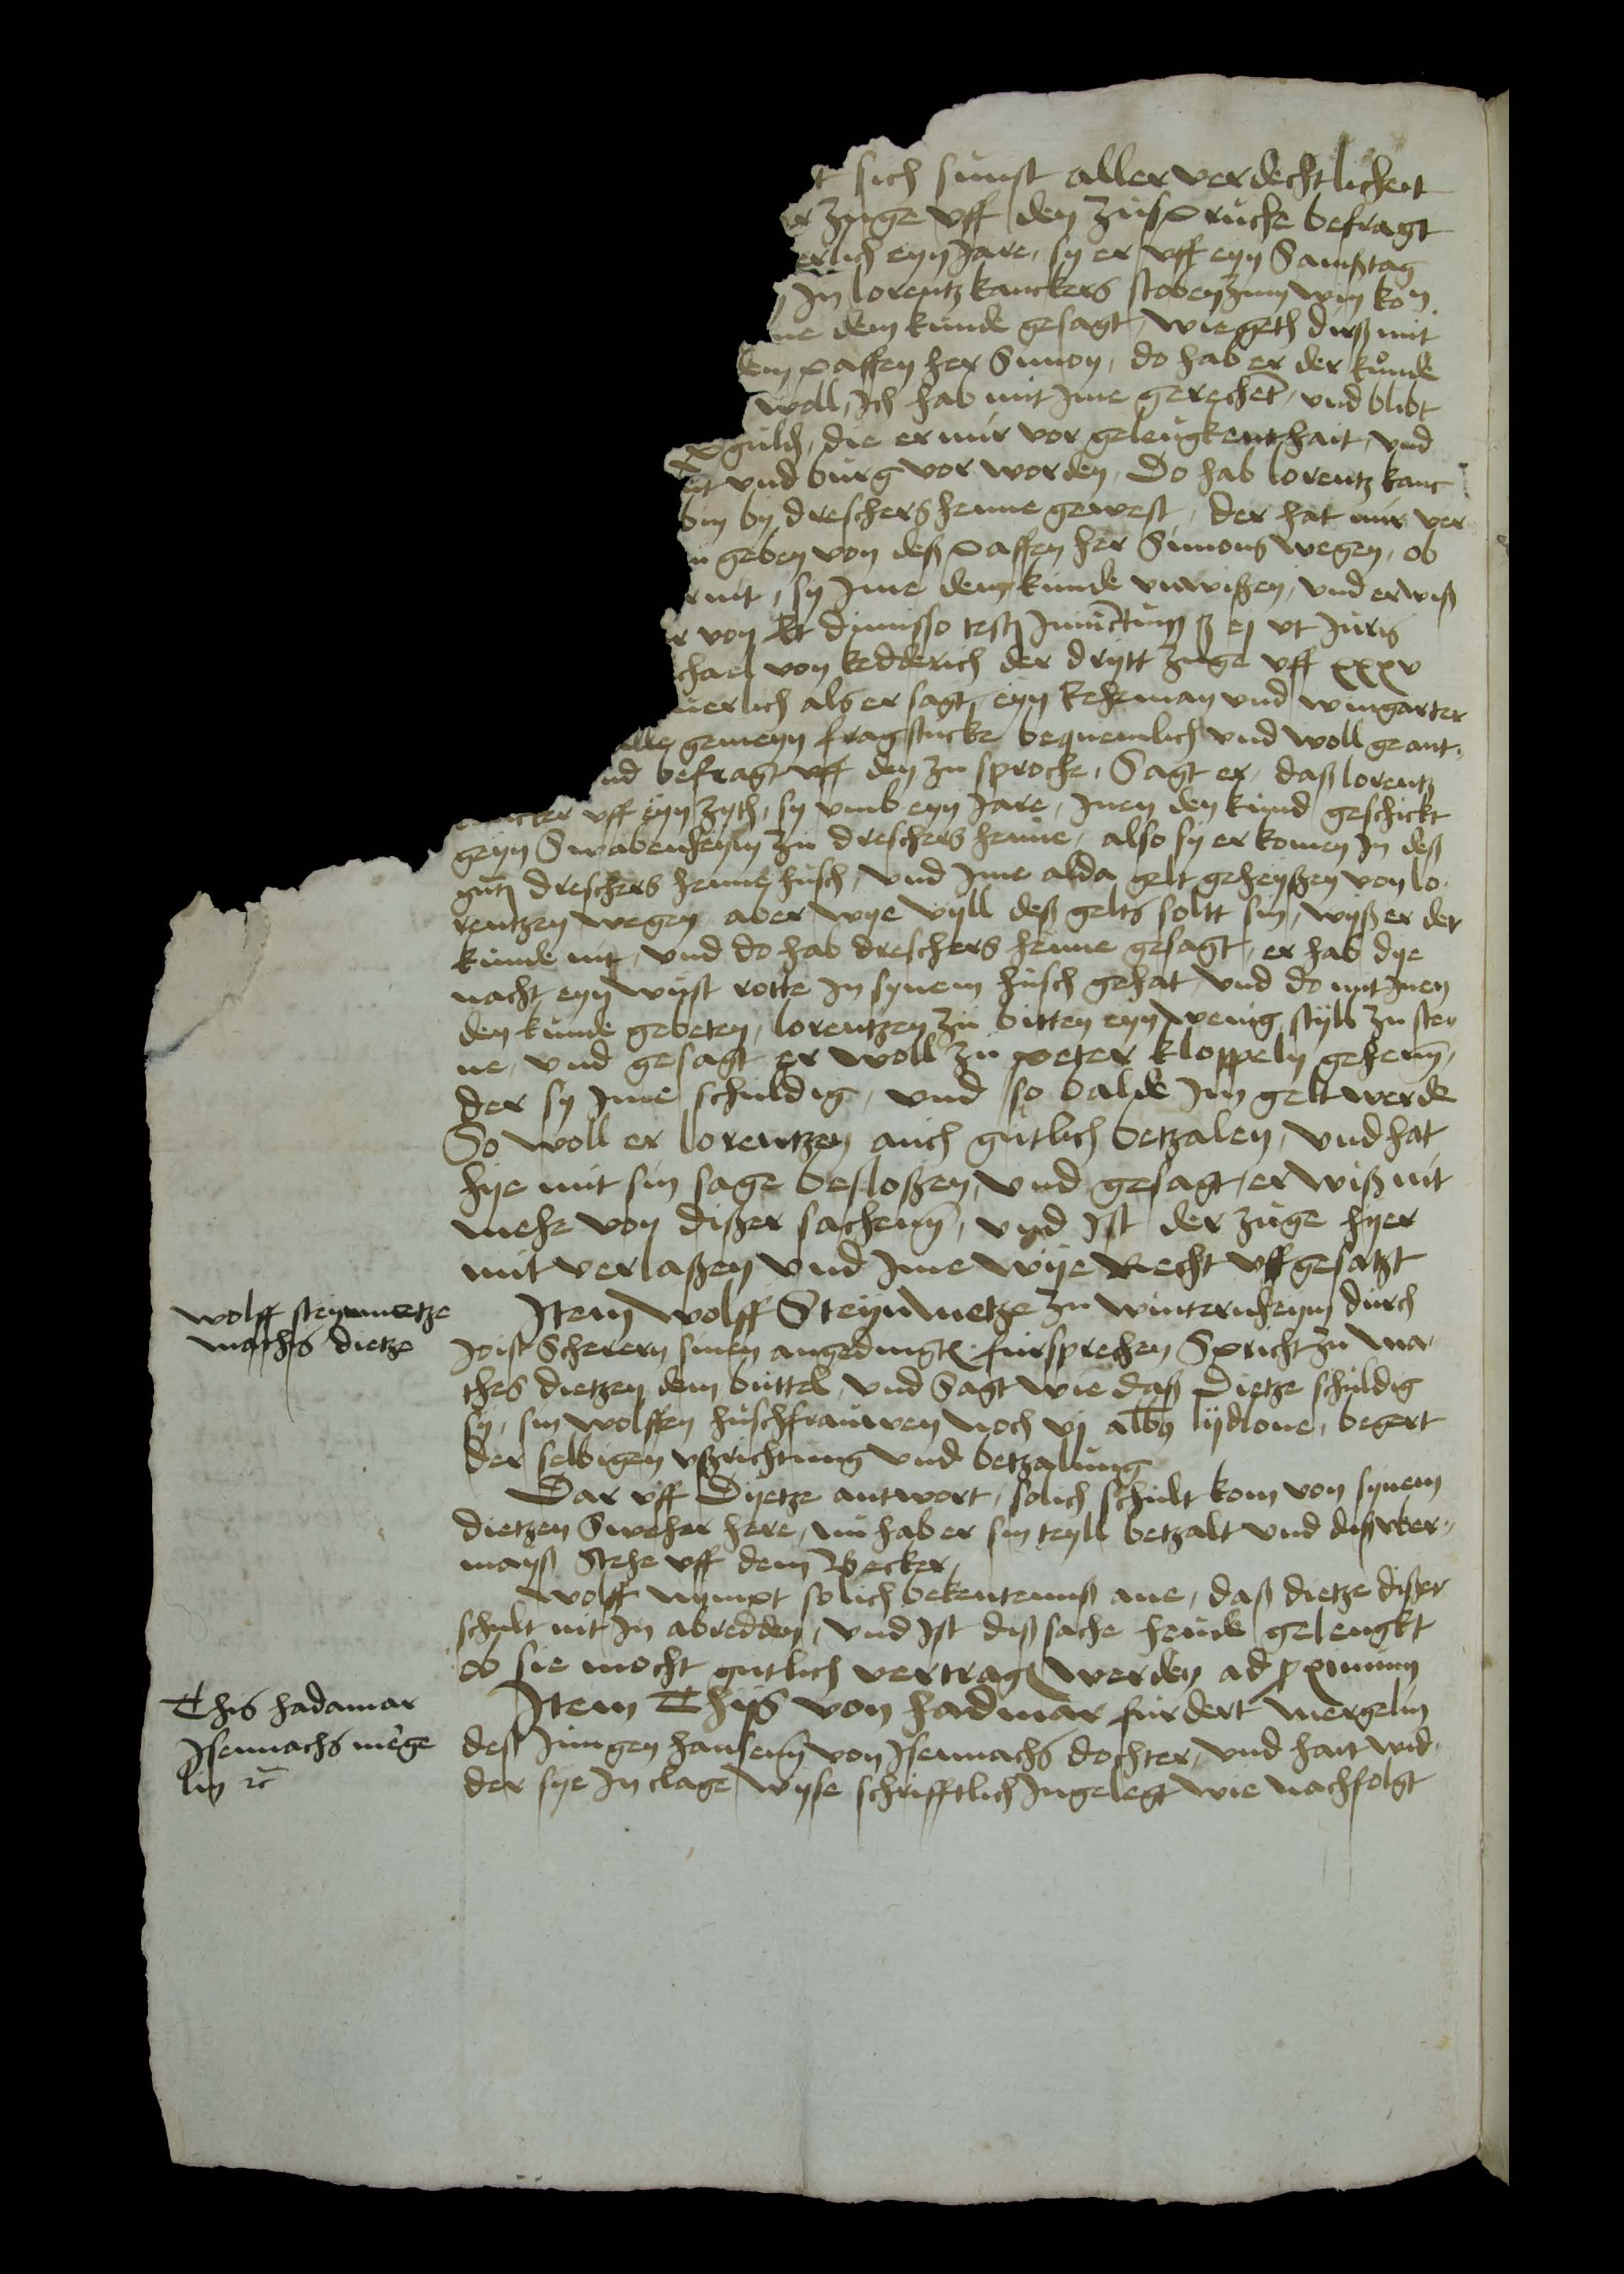 t sich sunst aller verdechtlicheit
r zuge vff den zusprucke befragt
erlich eyn Jare, sy er vff eyn Samßtag
In lorentz kanckers stoben zum wyn kon
ne dem kunde gesagt, wie geth dirß mit
dem paffen her Simon, do hab er der kunde
woll, Ich hab mit Ime gerechet, vnd blibt
x guld, die er mir vor geleugkent hait, vnd
vnd burg vor worden, Do hab lorentz kanc
bin by dreschers henne gewest, der hat mir ver
geben von deß paffen her Simons wegen, ob
nit, sy Ime dem kunde vnwißen, vnd er wiß
r von et dimisso teste Iniunctum ß ej vt Juris
chael von kedderich der drytt zuge vff xxxv
uerlich als er sagt, eyn lehrman vnd wingarter
alle gemeyn fragstucke bequemlich vnd woll geant,
nd befragt vff den zu sproche, Sagt er, daß lorentz
ncker vff eyn zyth, sy vmb eyn Jare, Inen den kund geschickt
geyn Swabenheym zu dreschers henne, also sy er komen In deß
gut dreschers henne husch, vnd Ime alda gelt geheyßen von lo,
rentzen wegen aber wye vyll deß gelts soltt sin, wyß er der
kunde nit, vnd do hab dreschers henne gesagt, er hab dye
nacht eyn wust rotte In synem husch gehat vnd do mit Inen
den kunde gebeten, lorentzen zu bitten eyn wenig styll zu sten
ne, vnd gesagt er woll zu peter kloppeln gehenn,
der sy Ime schuldig, vnd so balde Im gelt werde
So woll er lorentzen auch gutlich betzalen, vnd hat
hye mit sin sage besloßen, vnd gesagt, er wiß nit
mehe von dißer sachenn, vnd Ist der zuge hyer
mit verlaßen vnd Ime wye Recht vffgesatzt
wolff steynmetze
mathes dietze
Item wolff Steynmetze zu winternheym durch
Joist Scherern sinen angedingten fursprechen Spricht zu ma,
thes dietzen dem buttel, vnd Sagt wie daß Dietze schuldig
sy, sin wolffen huschfrauwen noch vj albus lydlone, begert
der selbigen vßrichtung vnd betzalung
Dar vff Dyetze antwort, solich schult kom von synem
dietzen Sweher here, nu hab er sin teyll betzalt vnd diß vber,
mayß Stehe vff dem Becker,
wolff nympt solich bekentenuß ane, daß dietze dißer
schult nit In abredden, vnd Ist diß sache heude gelengkt
ob sie mocht gutlich vertragen werden ad proximum
This hadamar
Isennachs merge
lin etc
Item Thyß von hadmar furdert mergelin
deß Jungen hansenn von Isennachs dochter, vnd hait wid,
der sye In clage wyse schrifftlich Ingelegt wie nachfolgt